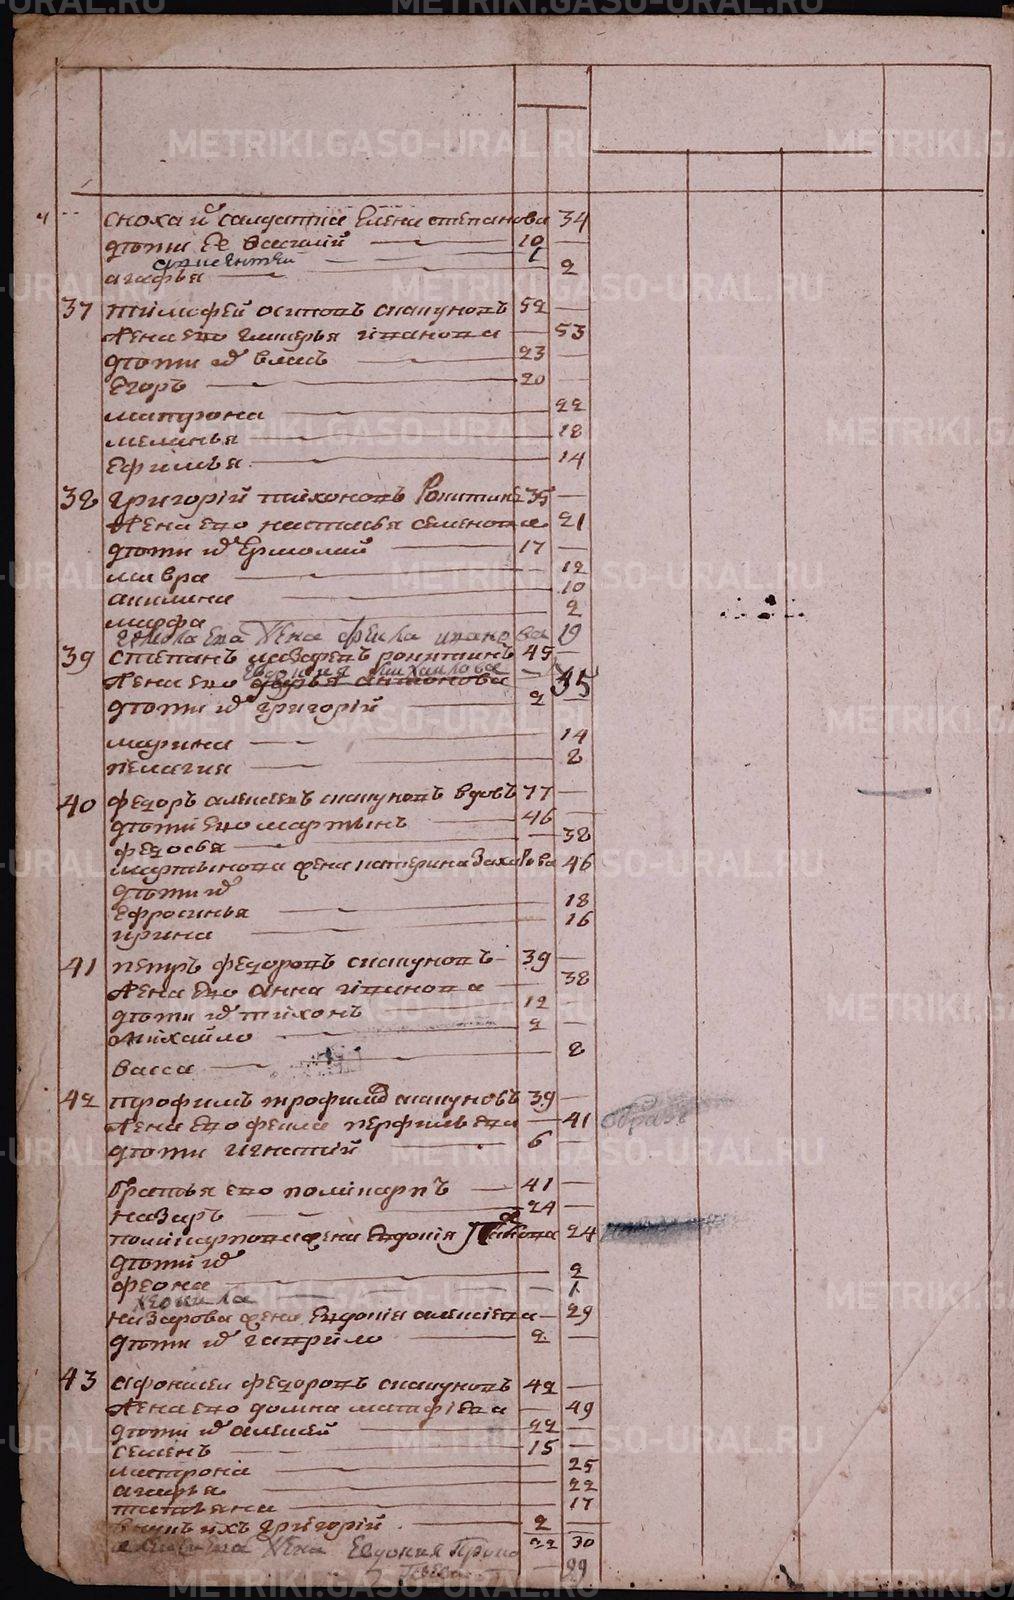 сноха й салдатка Елена степанова 34
дѣти ее Василий 10
1
агафья 2
37 тимофей осиповъ скакуновъ 52
жена его гликерья иванова 53
дѣти их власъ 23
Егоръ 20
матрона 22
меланья 18
Ефимья 14
38 григорій тихоновъ Ронитинъ 35
жена его настасья семенова 21
дѣти их Ермолай 17
мавра 12
акилина 10
марфа 2
ермолаева жена фекла иванова 19
39 степанъ назаревъ ронитинъ 45
жена его дарья антонова 35
Евдокия Михаилова
дѣти их григорій 2
марина 14
пелагия 8
40 федоръ алексеевъ скакуновъ вдовъ 77
дѣти его мартынъ 46
федосья 38
мартынова жена катерина Захарова 46
дѣти их
Ефросинья 18
ирина 16
41 петръ федоровъ скакуновъ 39
жена его анна иванова 38
дѣти их тихонъ 12
михайло 2
васса 8
42 трофимъ трофимов скакуновъ 39
жена его фекла перфильева 41
дѣти игнатий 6
братья его поликарпъ 41
назаръ 24
поликарпова жена Евдокія 24
дѣти их
феона 2
неонила 1
назарова жена Евдокія алексѣева 29
дѣти их гаврило 2
43 афонасей федоровъ скакуновъ 42
жена его домна матфіева 49
дѣти их алексей 22
семенъ 15
матрона 25
агафья 22
татьяна 17
внукъ ихъ григорій 2
22 30
алексеева жена Евдокия
29